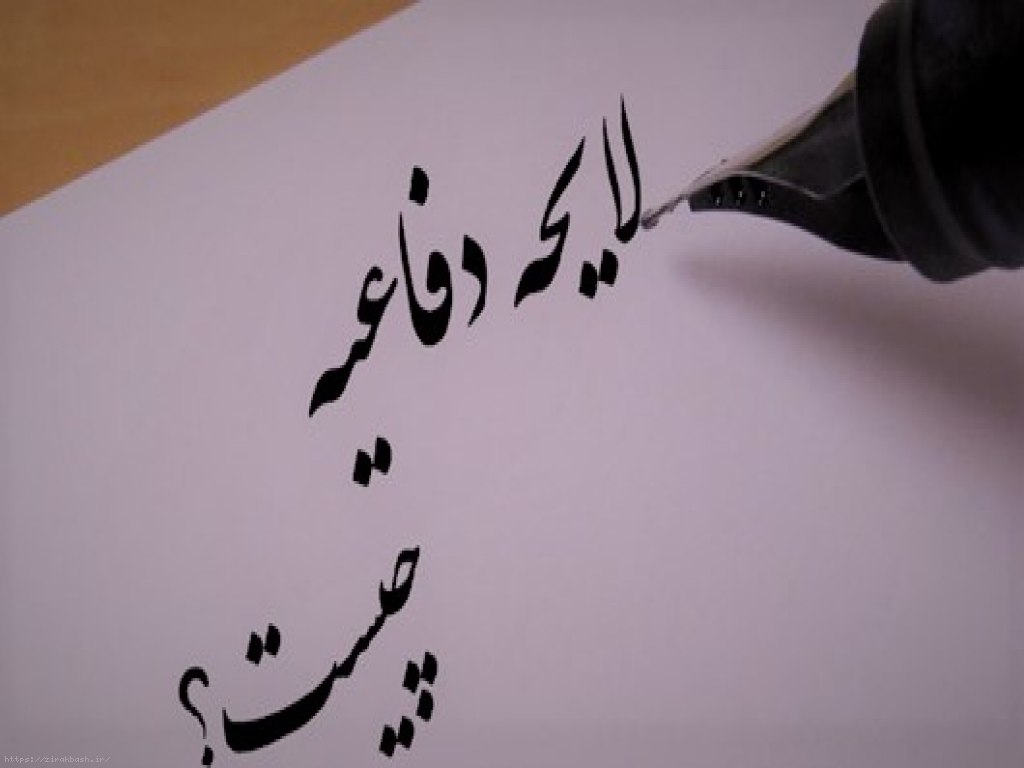 لایحه دفاعیه
چیست؟
https://zirahbash.ir/